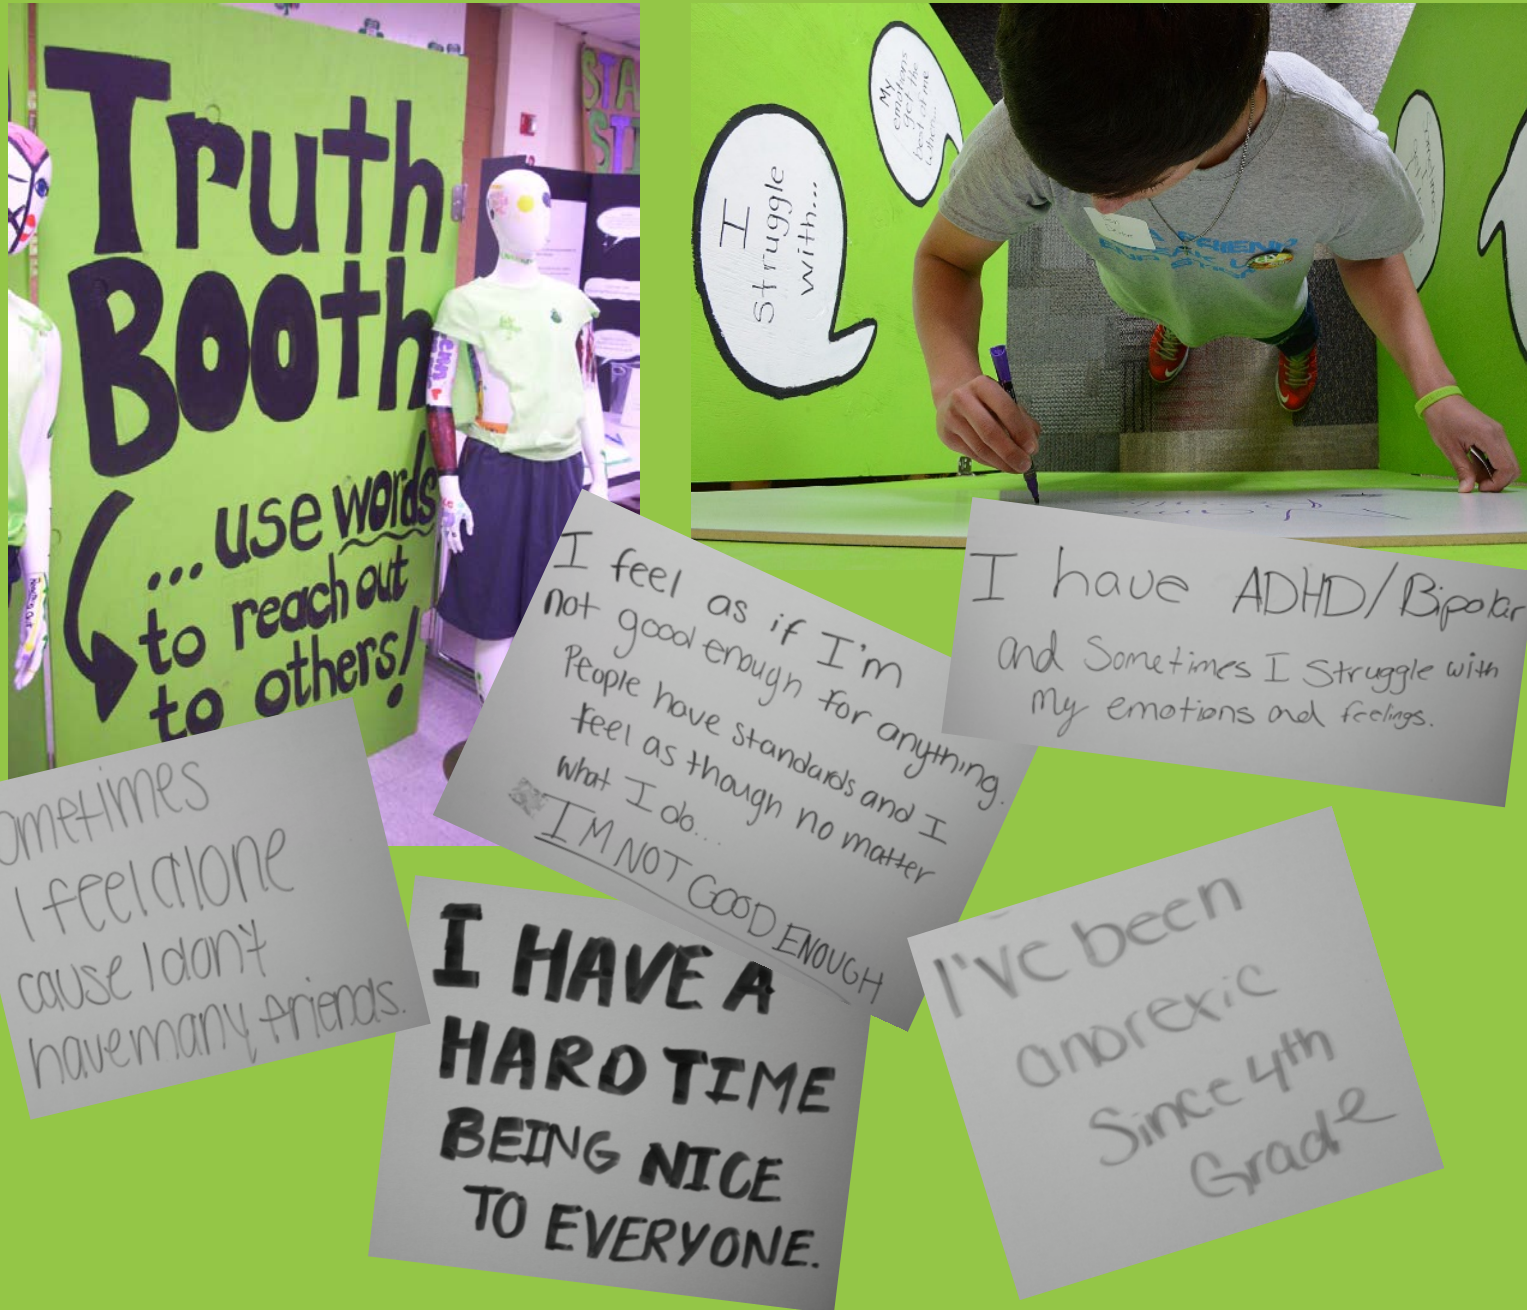 Truth
Booth
...use words
to reach out
to others!
I
struggle
with...
My
emotions
get the
best of me
when...
I feel as if I'm
not good enough for anything.
People have standards and I
feel as though no matter
what I do...
I'M NOT GOOD ENOUGH
I have ADHD/Bipolar
and Sometimes I struggle with
my emotions and feelings.
ometimes
I feel alone
cause I don't
have many friends.
I HAVE A
HARD TIME
BEING NICE
TO EVERYONE.
I've been
anorexic
Since 4th
Grade